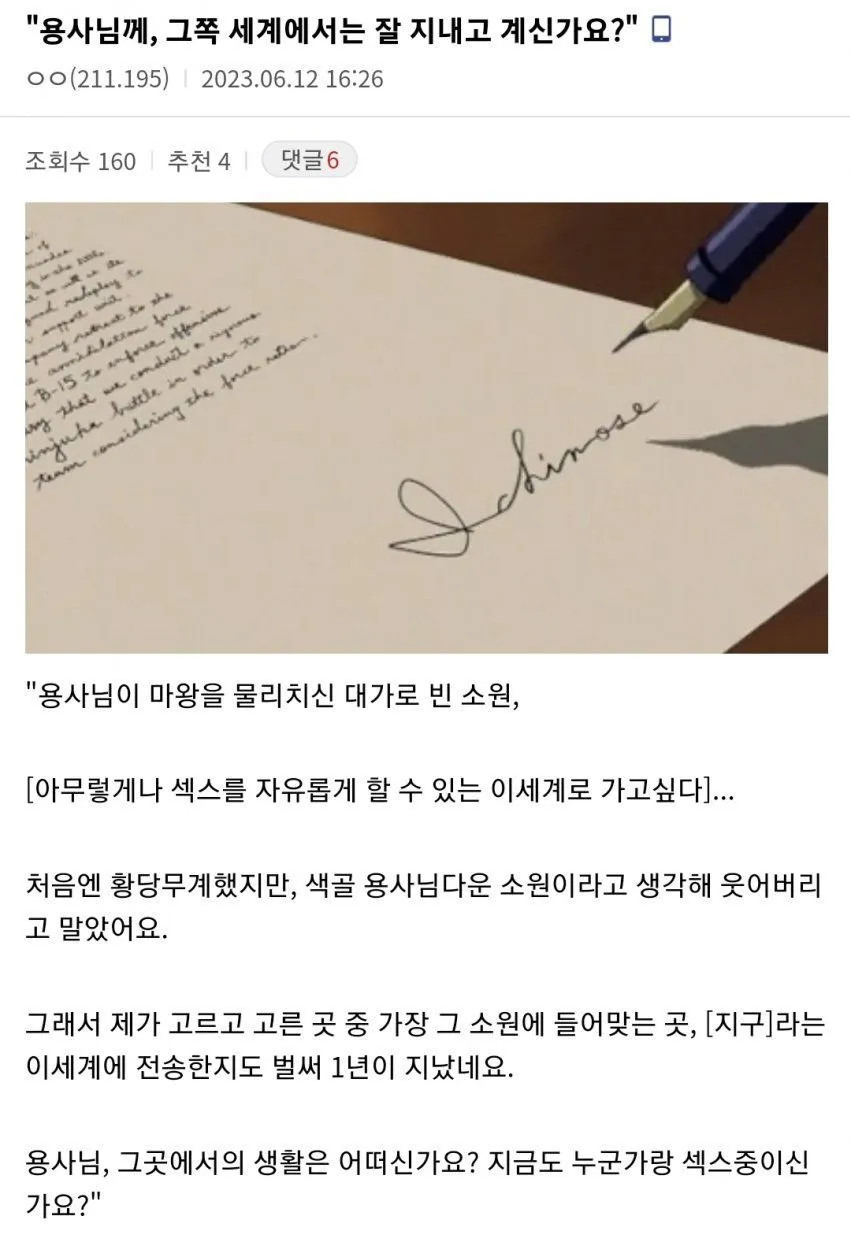 "용사님께, 그쪽 세계에서는 잘 지내고 계신가요?"
ㅇㅇ(211.195) | 2023.06.12 16:26
조회수 160 | 추천 4 | 댓글 6
support unit.
company retreat to the
annihilation force
B-15 to enforce offensive
that we conduct a rigorous
battle in order to
team considering the force ratio.
Ichinose
"용사님이 마왕을 물리치신 대가로 빈 소원,
[아무렇게나 섹스를 자유롭게 할 수 있는 이세계로 가고싶다]...
처음엔 황당무계했지만, 색골 용사님다운 소원이라고 생각해 웃어버리
고 말았어요.
그래서 제가 고르고 고른 곳 중 가장 그 소원에 들어맞는 곳, [지구]라는
이세계에 전송한지도 벌써 1년이 지났네요.
용사님, 그곳에서의 생활은 어떠신가요? 지금도 누군가랑 섹스중이신
가요?"